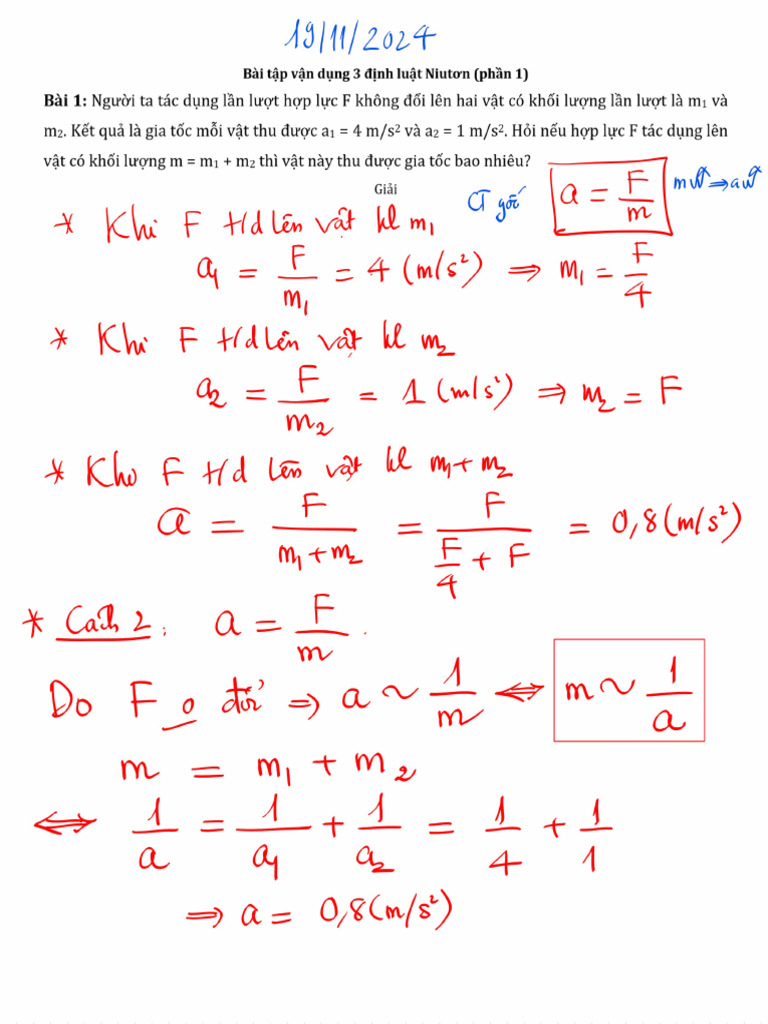 19/11/2024
Bài tập vận dụng 3 định luật Niutơn (phần 1)
Bài 1: Người ta tác dụng lần lượt hợp lực F không đổi lên hai vật có khối lượng lần lượt là m₁ và
m₂. Kết quả là gia tốc mỗi vật thu được a₁ = 4 m/s² và a₂ = 1 m/s². Hỏi nếu hợp lực F tác dụng lên
vật có khối lượng m = m₁ + m₂ thì vật này thu được gia tốc bao nhiêu?
Giải
CT gốc a = F/m
* Khi F t/d lên vật kl m₁
a₁ = F/m₁ = 4 (m/s²) ⇒ m₁ = F/4
* Khi F t/d lên vật kl m₂
a₂ = F/m₂ = 1 (m/s²) ⇒ m₂ = F
* Kho F t/d lên vật kl m₁ + m₂
a = F/(m₁ + m₂) = F/(F/4 + F) = 0,8 (m/s²)
* Cách 2: a = F/m.
Do F o đổi ⇒ a ~ 1/m ⇔ m ~ 1/a
m = m₁ + m₂
⇔ 1/a = 1/a₁ + 1/a₂ = 1/4 + 1/1
⇒ a = 0,8 (m/s²)